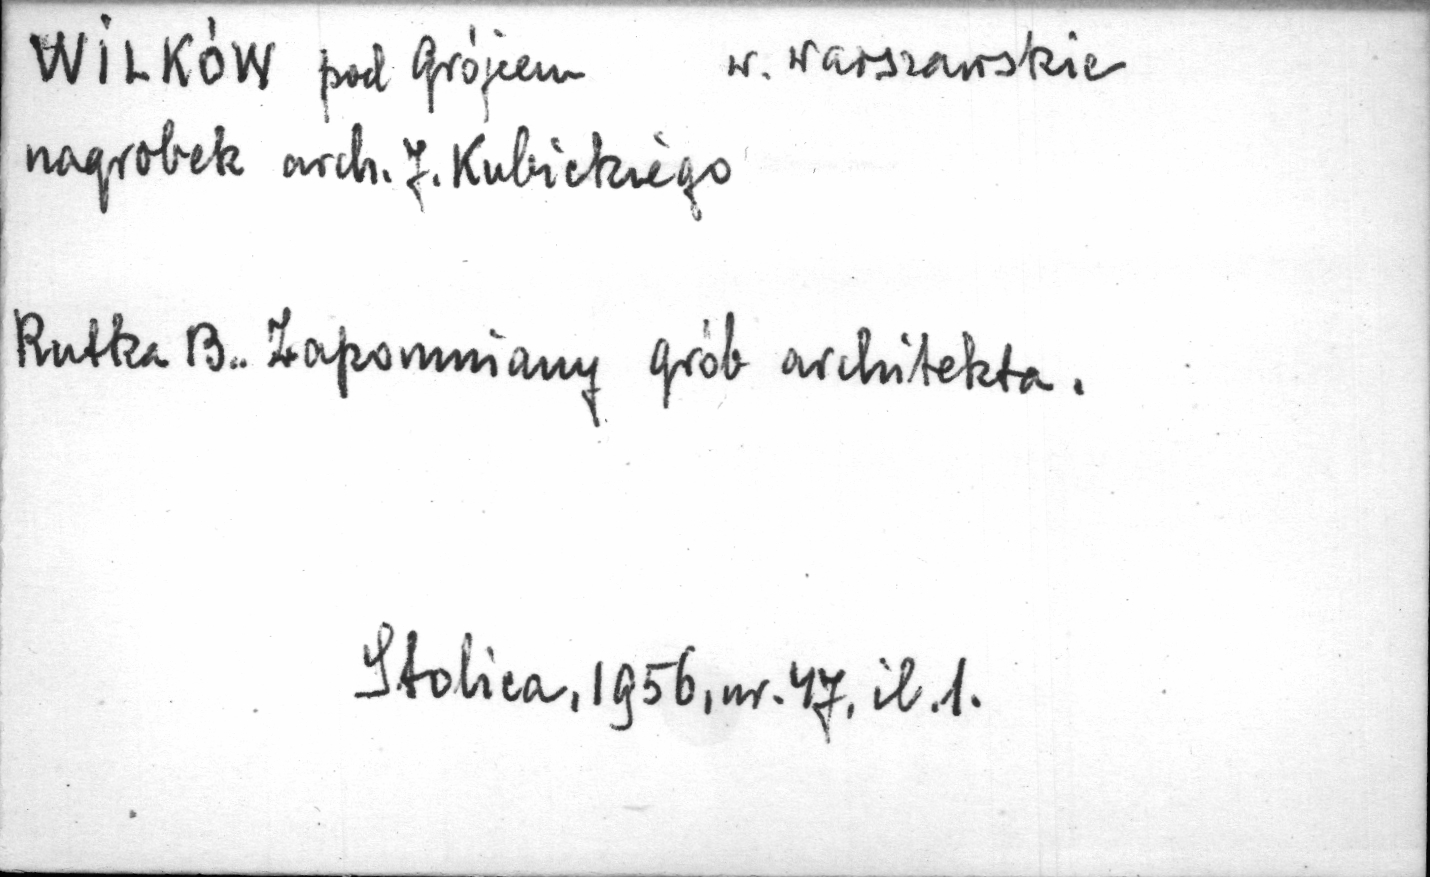 WILKÓW pod Grójcem w. warszawskie
nagrobek arch. J. Kubickiego
Rutka B.. Zapomniany grób architekta.
Stolica, 1956, nr. 47, il. 1.